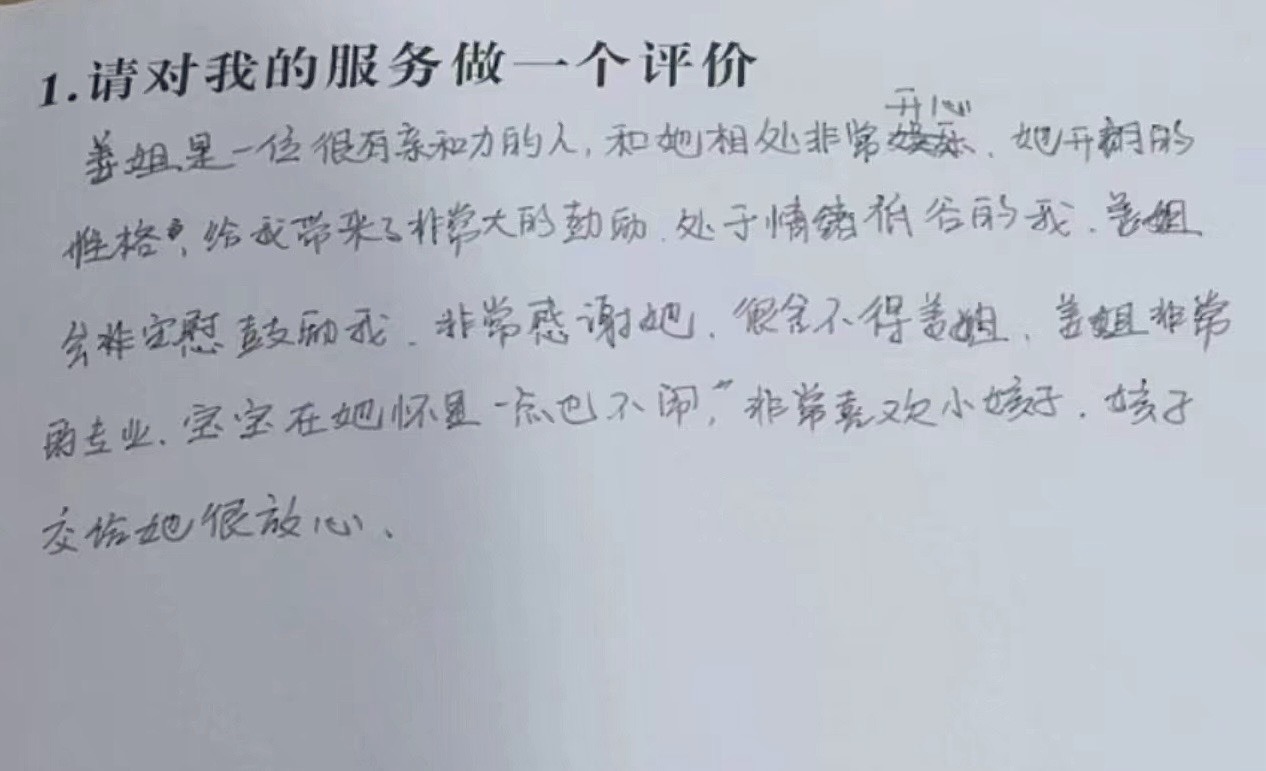 1.请对我的服务做一个评价
开心
善姐是一位很有亲和力的人,和她相处非常,她开朗的
性格,给我带来了非常大的鼓励.处于情绪低谷的我.善姐
会非安慰鼓励我.非常感谢她.很舍不得善姐.善姐非常
的专业.宝宝在她怀里一点也不闹,非常喜欢小孩子.孩子
交给她很放心、